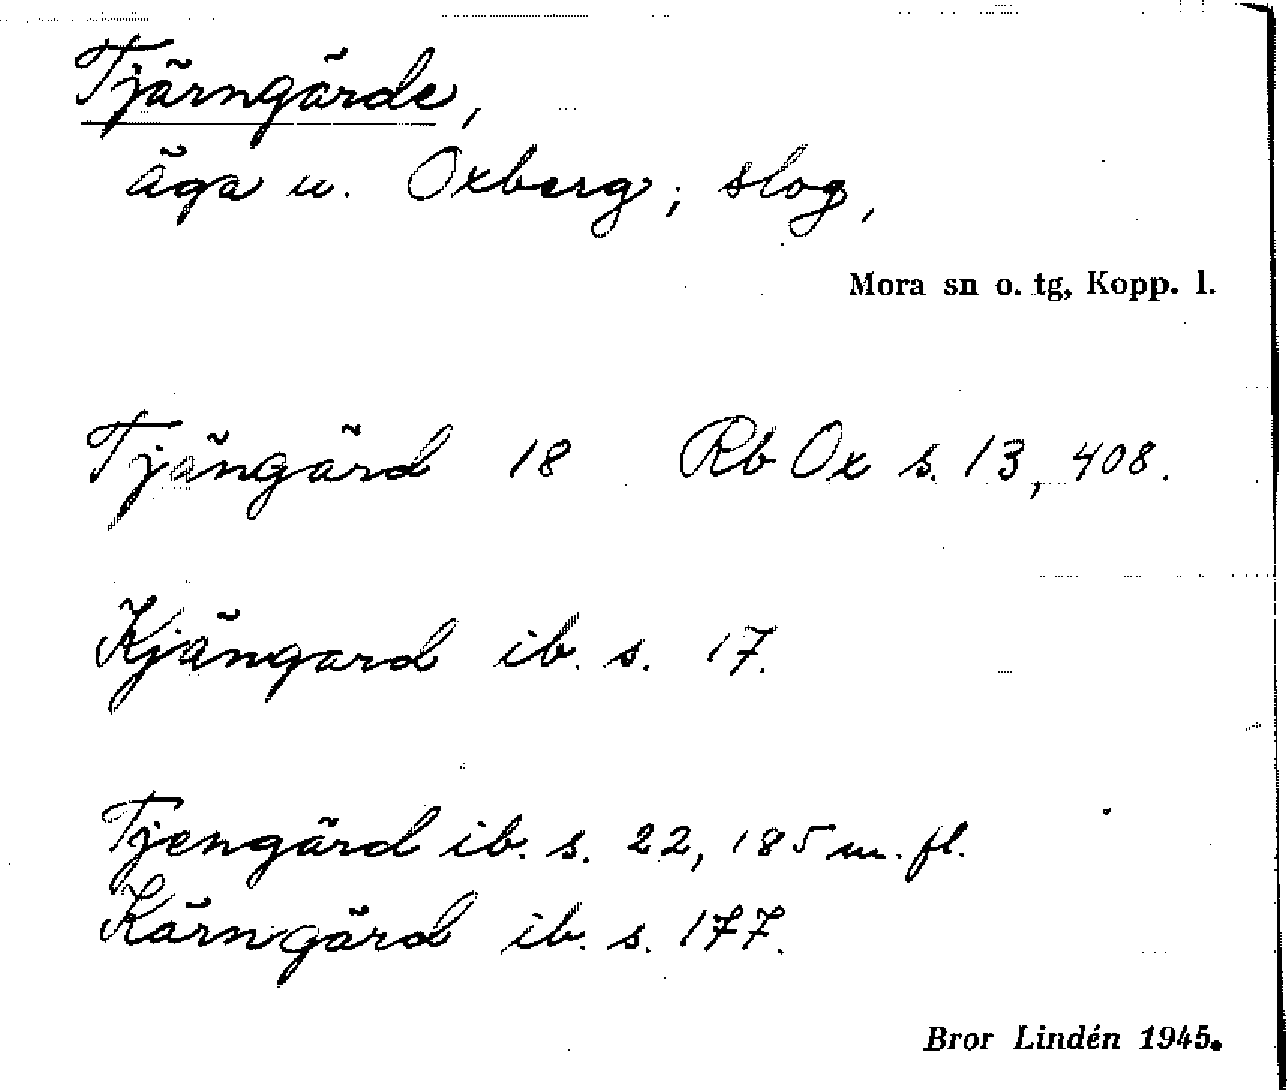 Tjärngärde,
äga u. Oxberg; slog,
Mora sn o. tg, Kopp. l.
Tjängärd 18 Rb Ox s. 13, 408.
Kjängard ib. s. 17.
Tjengärd ib. s. 22, 185 m. fl.
Kärngärd ib. s. 177.
Bror Lindén 1945.